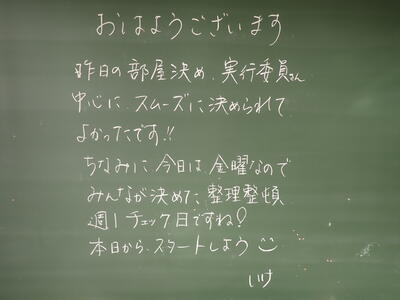 おはようございます
昨日の部屋決め、実行委員さん
中心に、スムーズに決められて
よかったです!!
ちなみに今日は金曜なので
みんなが決めた整理整頓
週1チェック日ですね!
本日から、スタートしよう
いけ